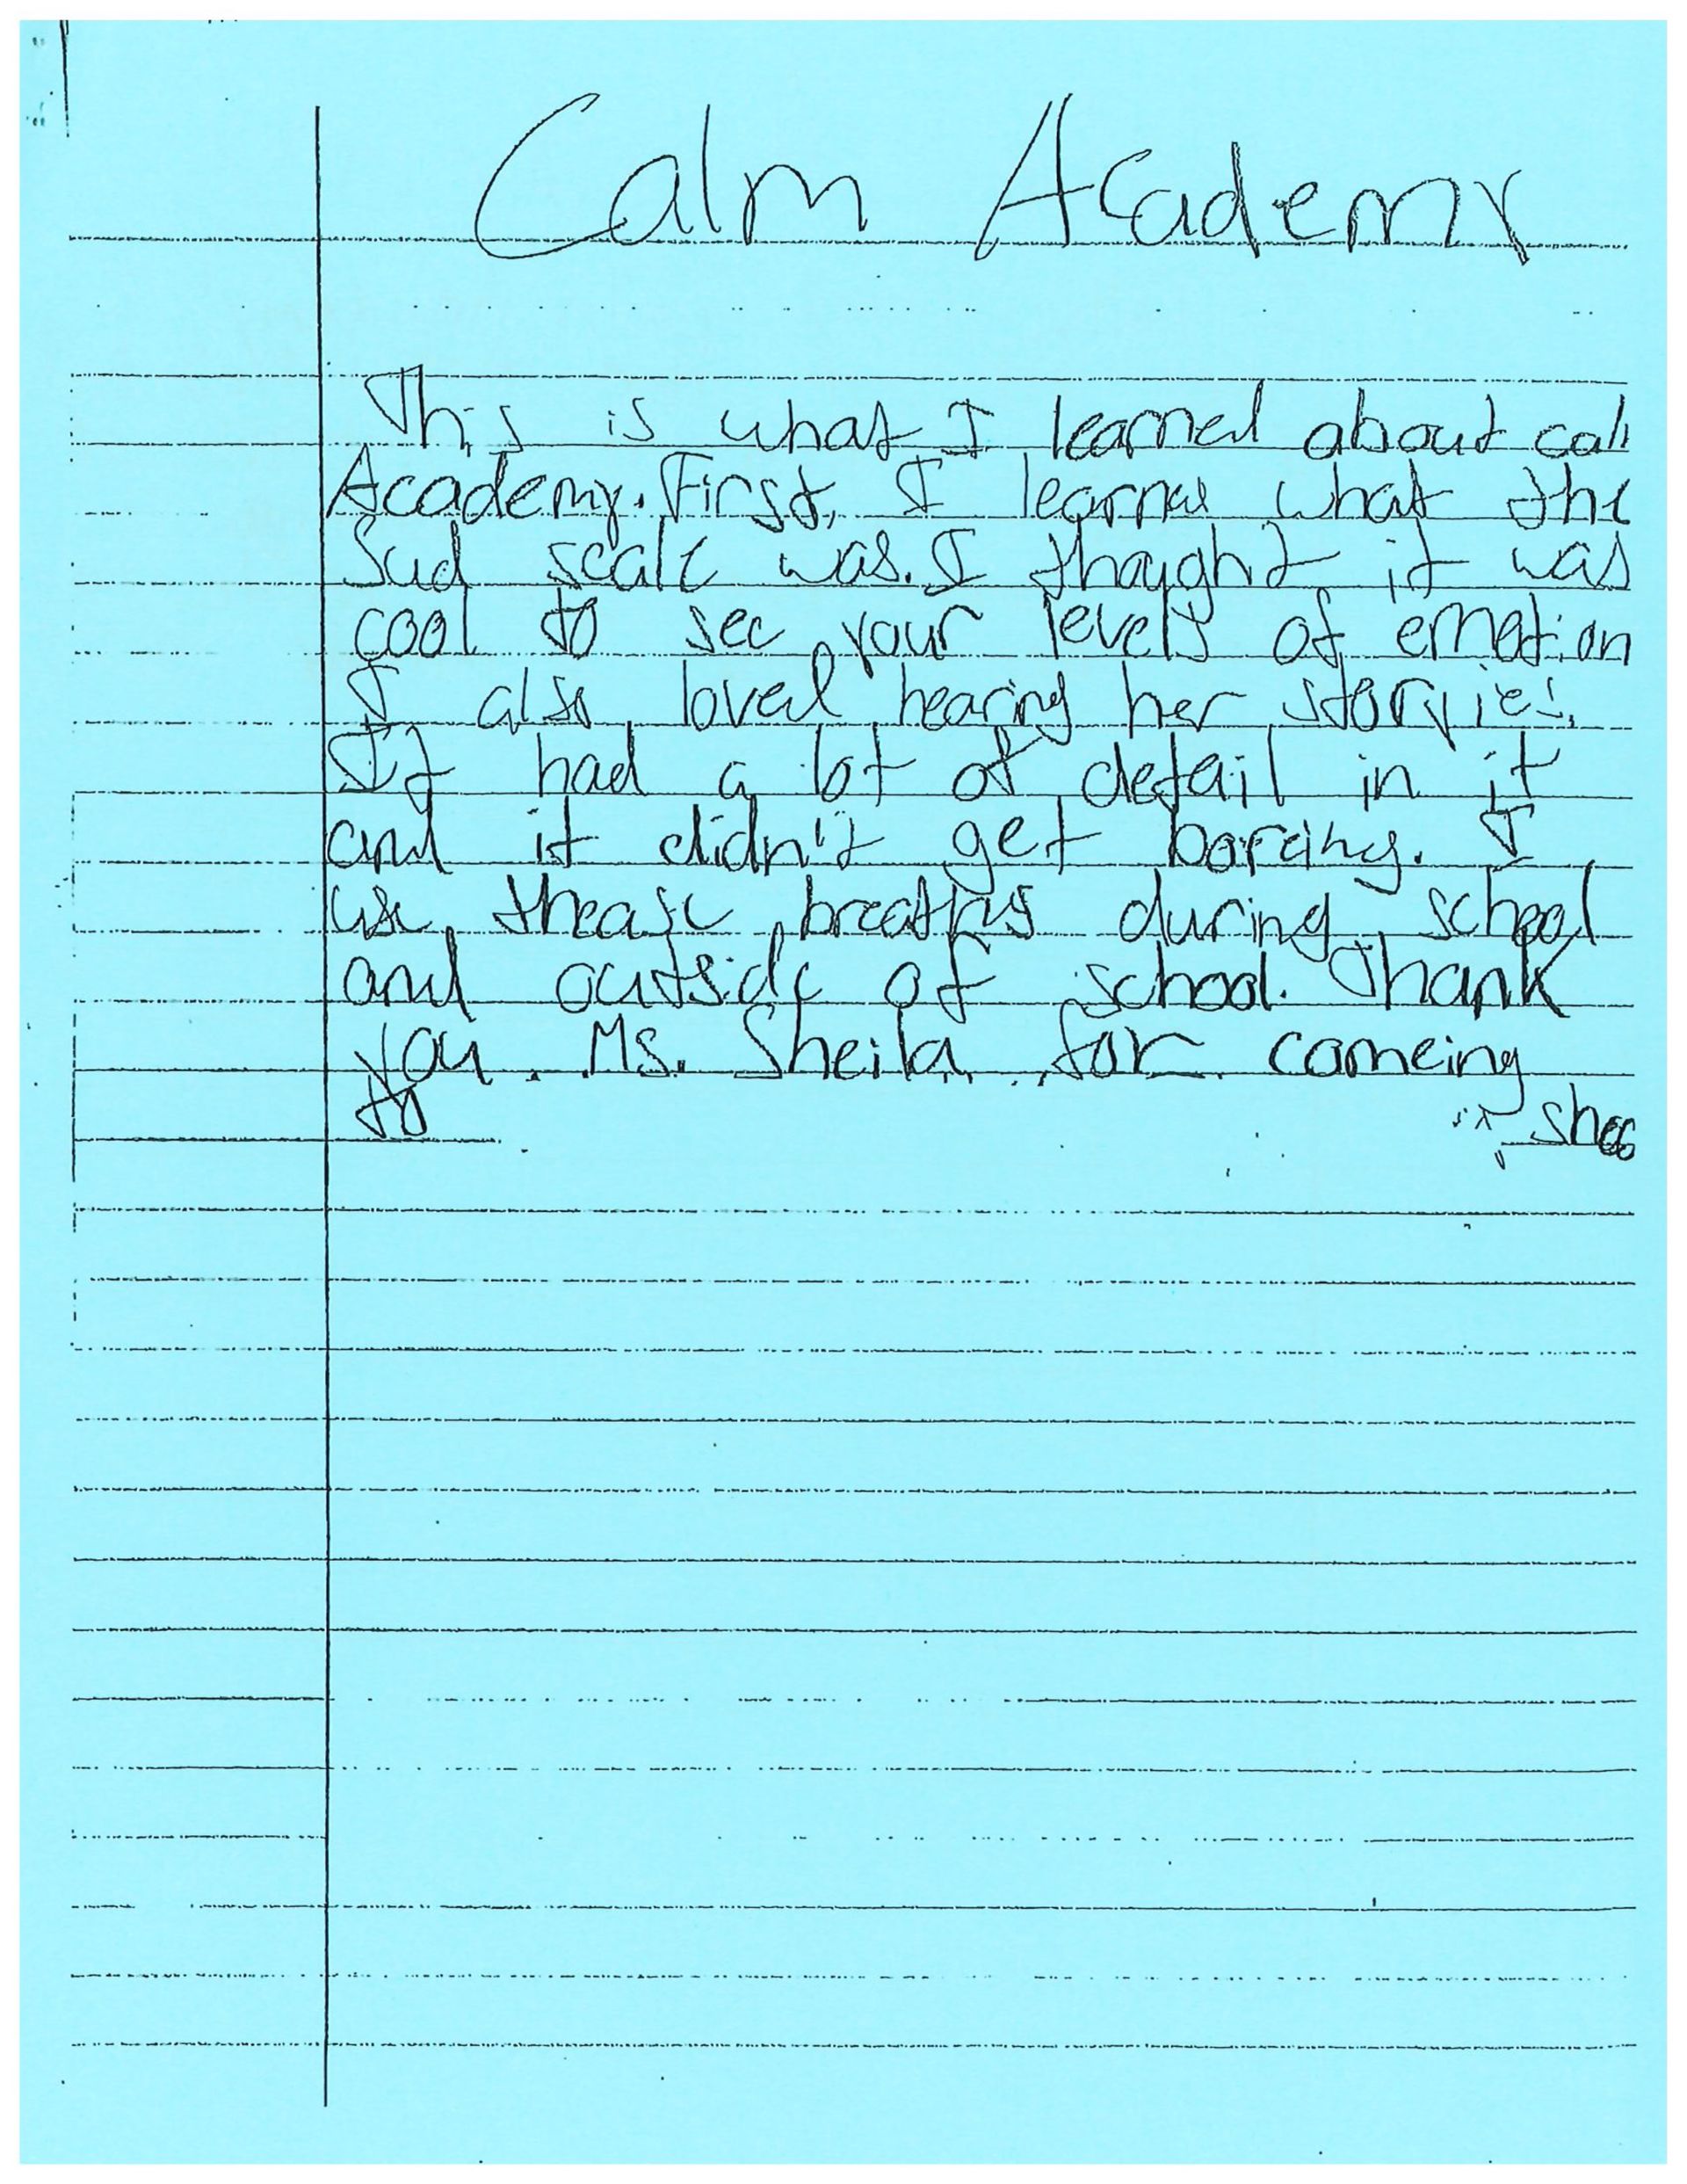 Calm Academy
This is what I learned about cal
Academy. First, I learned what the
Sud scale was. I thought it was
cool to see your levels of emotion
I also loved hearing her storyies.
It had a lot of detail in it
and it didn't get boreing. I
use thease breathes during school
and outside of school. Thank
you Ms. Sheila for comeing
to